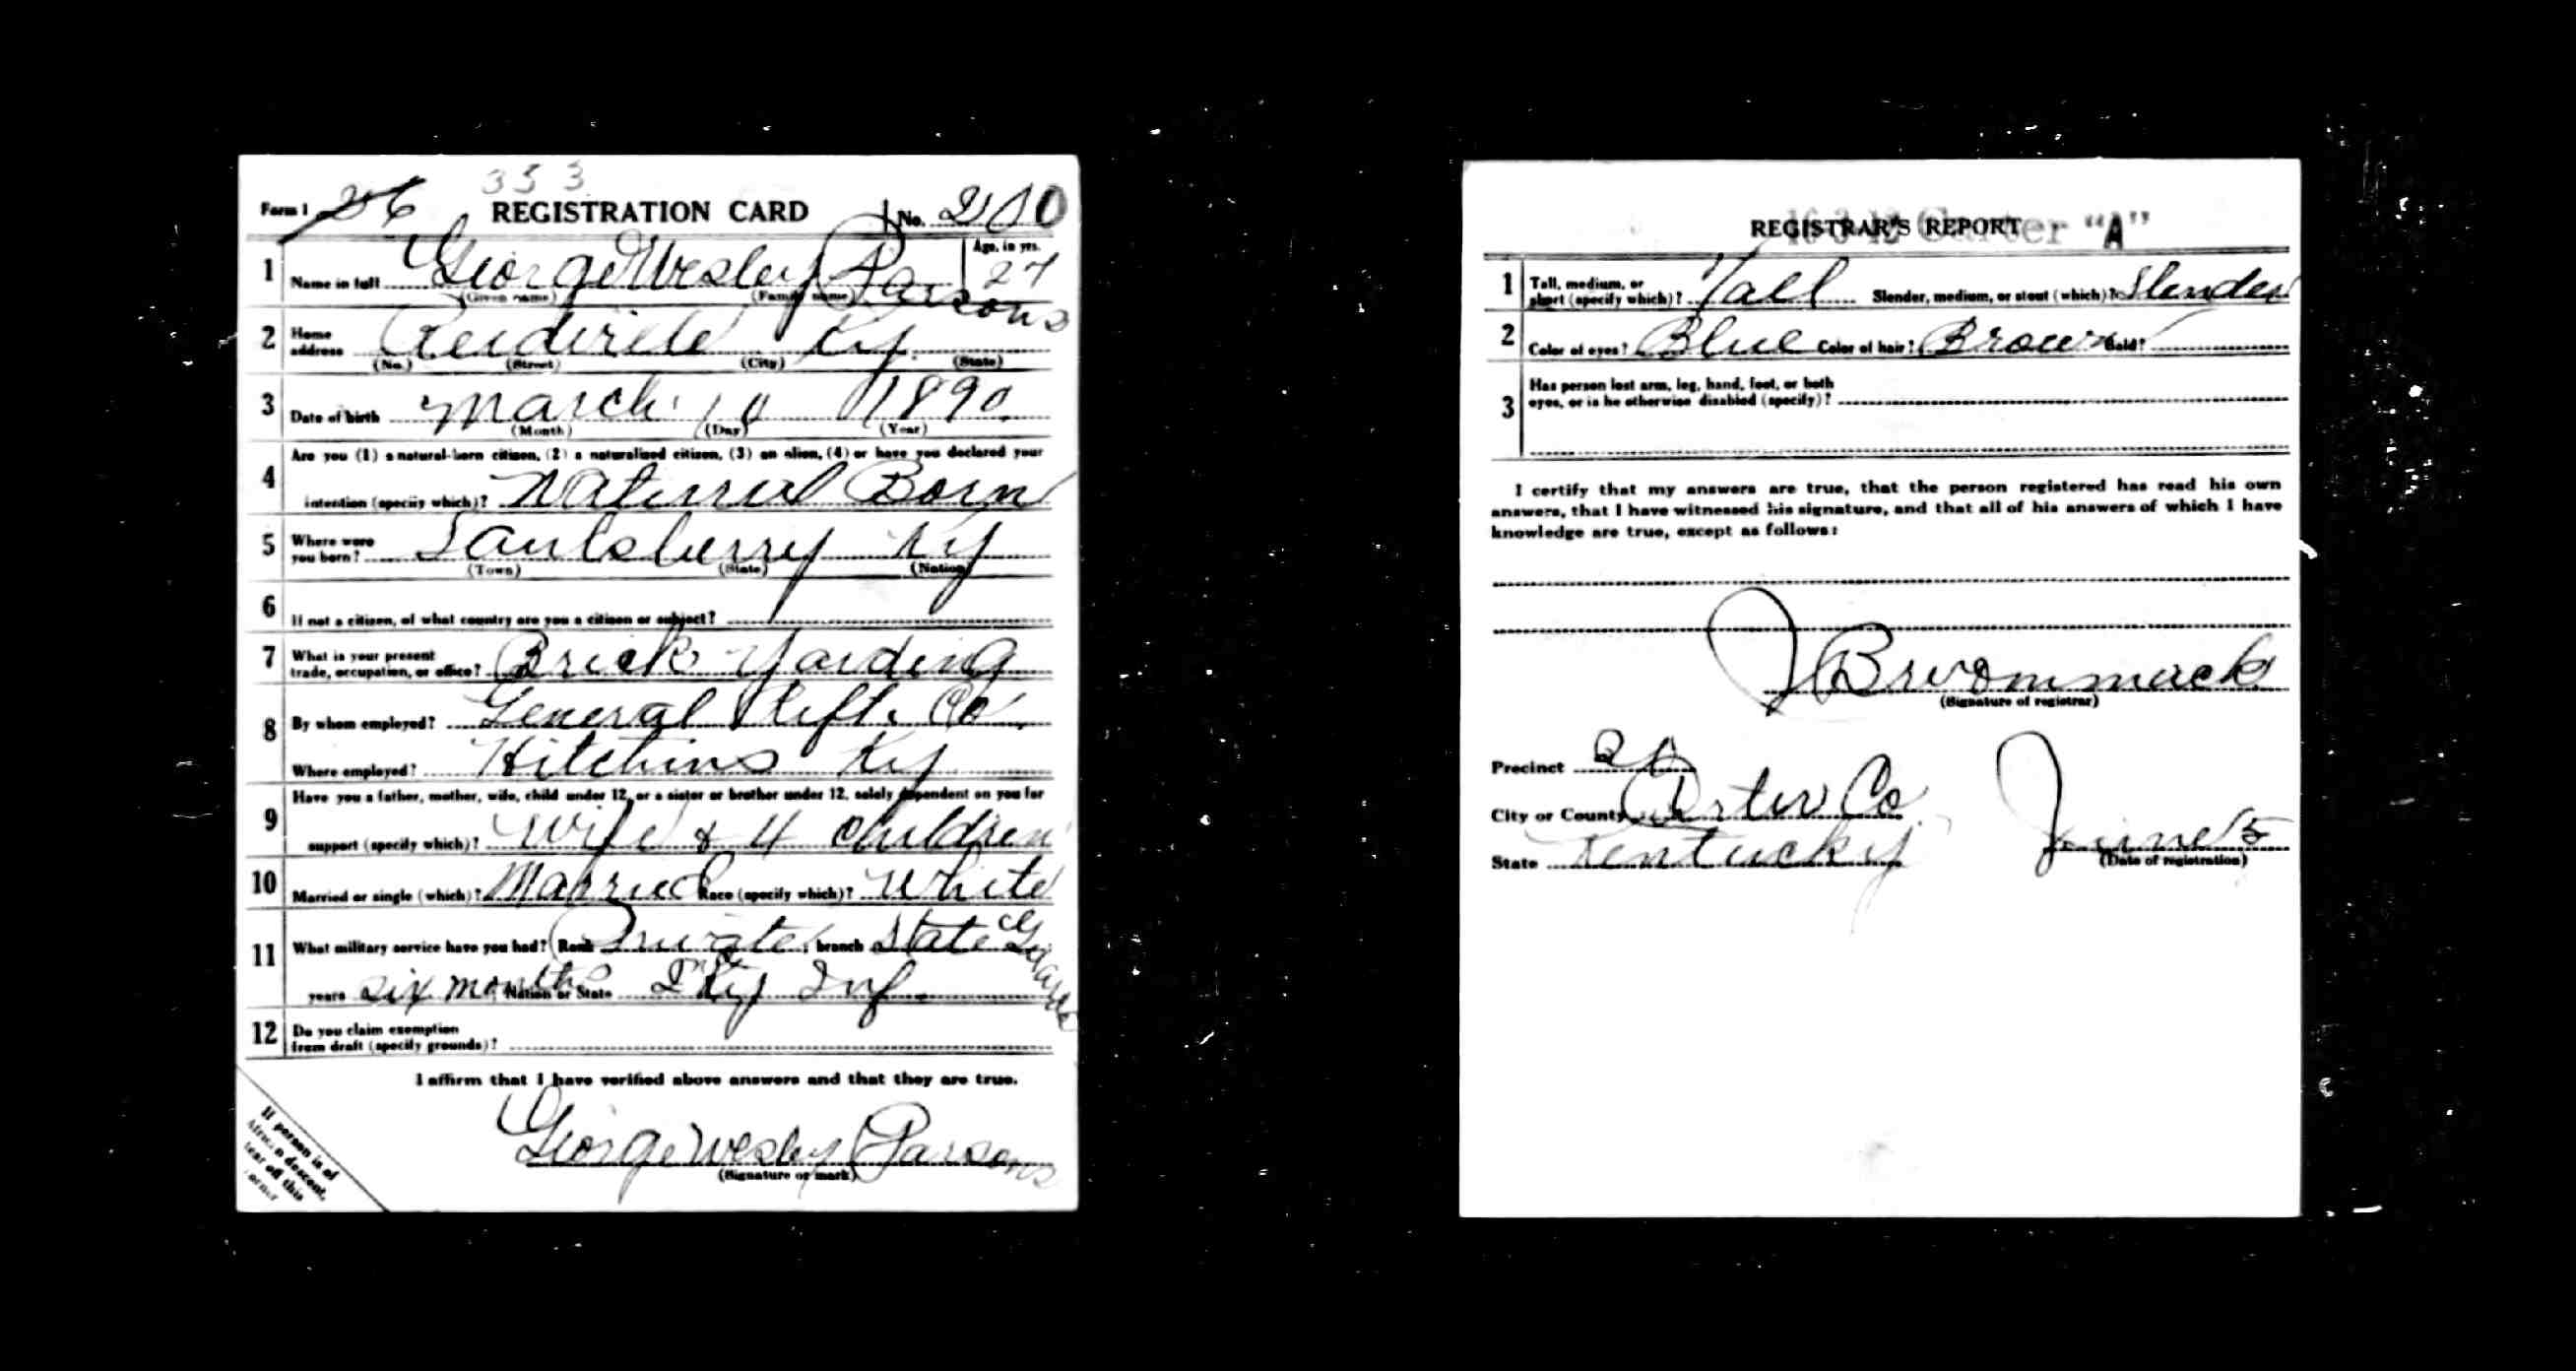 353
Form 1 26 REGISTRATION CARD No. 210
1 Name in full George Wesley Parsons Age, in yrs. 27
(Given name) (Family name)
2 Home address Ky.
(No.) (Street) (City) (State)
3 Date of birth March 10 1890
(Month) (Day) (Year)
4 Are you (1) a natural-born citizen, (2) a naturalized citizen, (3) an alien, (4) or have you declared your
intention (specify which)? Natural Born
5 Where were you born? Saulsberry Ky
(Town) (State) (Nation)
6 If not a citizen, of what country are you a citizen or subject?
7 What is your present trade, occupation, or office? Brick Yarding
8 By whom employed? General Refr. Co.
Where employed? Hitchins Ky
9 Have you a father, mother, wife, child under 12, or a sister or brother under 12, solely dependent on you for
support (specify which)? Wife & 4 children
10 Married or single (which)? Married Race (specify which)? White
11 What military service have you had? Rank Private; branch State Guards
years six months Nation or State Ky Inf.
12 Do you claim exemption
from draft (specify grounds)?
I affirm that I have verified above answers and that they are true.
George Wesley Parsons
(Signature or mark)
If person is of
African descent,
tear off this
corner
REGISTRAR'S REPORT
16 3 12 Carter "A"
1 Tall, medium, or short (specify which)? Tall Slender, medium, or stout (which)? Slender
2 Color of eyes? Blue Color of hair? Brown Bald?
3 Has person lost arm, leg, hand, foot, or both
eyes, or is he otherwise disabled (specify)?
I certify that my answers are true, that the person registered has read his own
answers, that I have witnessed his signature, and that all of his answers of which I have
knowledge are true, except as follows:
(Signature of registrar)
Precinct
City or County Carter Co
State Kentucky June 5
(Date of registration)